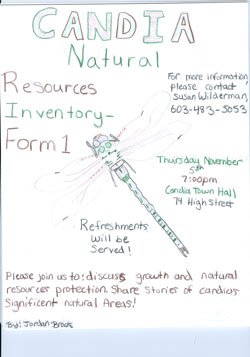 CANDIA
Natural
Resources
Inventory-
Form 1
For more information
please contact
Susan Wilderman,
603-483-5053
Thursday November
5th
7:00pm
Candia Town Hall
74 High Street
Refreshments
Will be
Served!
Please join us to: discuss growth and natural
resources protection. Share Stories of candias
Significant natural Areas!
By: Jordan Brock